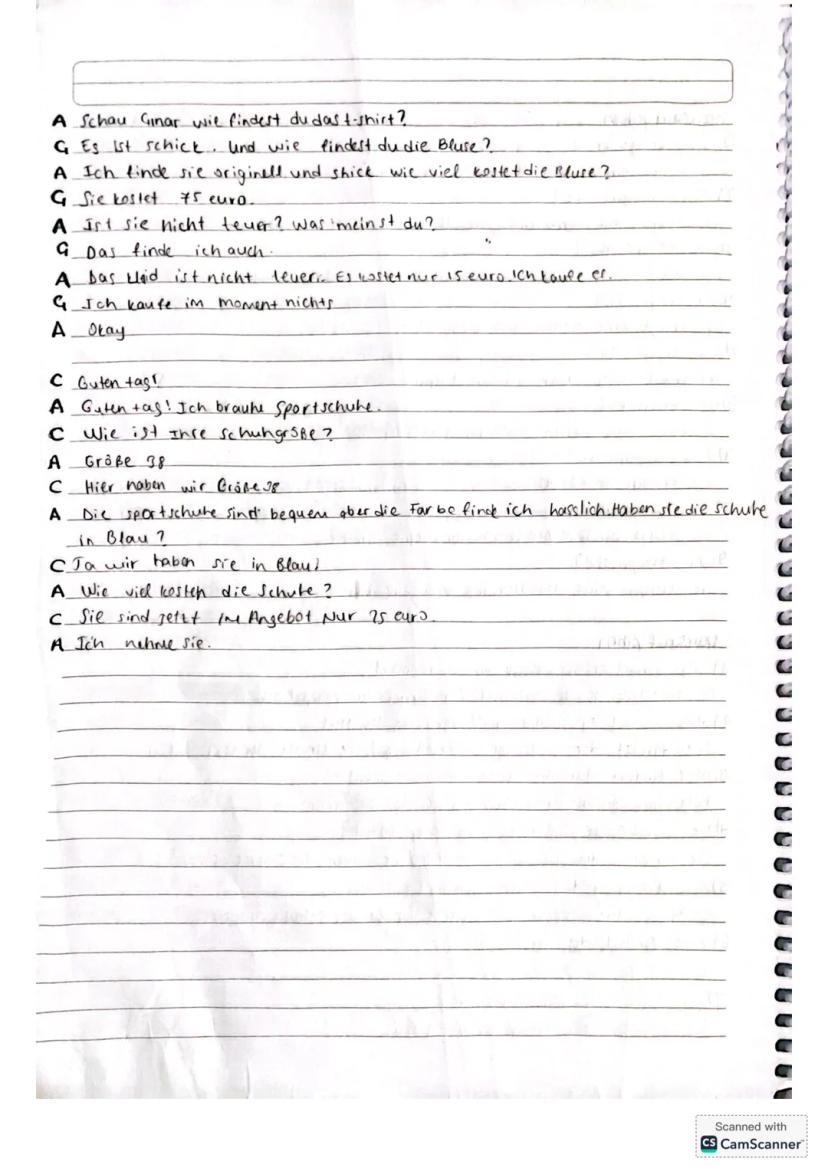 A Schau Çınar wie findest du das t-shirt?
G Es ist schick. Und wie findest du die Bluse?
A Ich finde sie originell und shick wie viel kostet die Bluse?
G Sie kostet 75 euro.
A Ist sie nicht teuer? Was meinst du?
G Das finde ich auch.
A Das kleid ist nicht teuer. Es kostet nur 15 euro. Ich kaufe es.
G Ich kaufe im moment nichts
A Okay
C Guten tag!
A Guten tag! Ich brauhe Sportschuhe.
C Wie ist Ihre schuhgröße?
A Größe 38
C Hier haben wir Größe 38
A Die sportschuhe sind bequem aber die Farbe finde ich hasslich. Haben sie die schuhe
in Blau?
C Ja wir haben sie in Blau!
A Wie viel kosten die Schuhe?
C Sie sind jetzt im Angebot Nur 25 euro.
A Ich nehme sie.
Scanned with
CS CamScanner